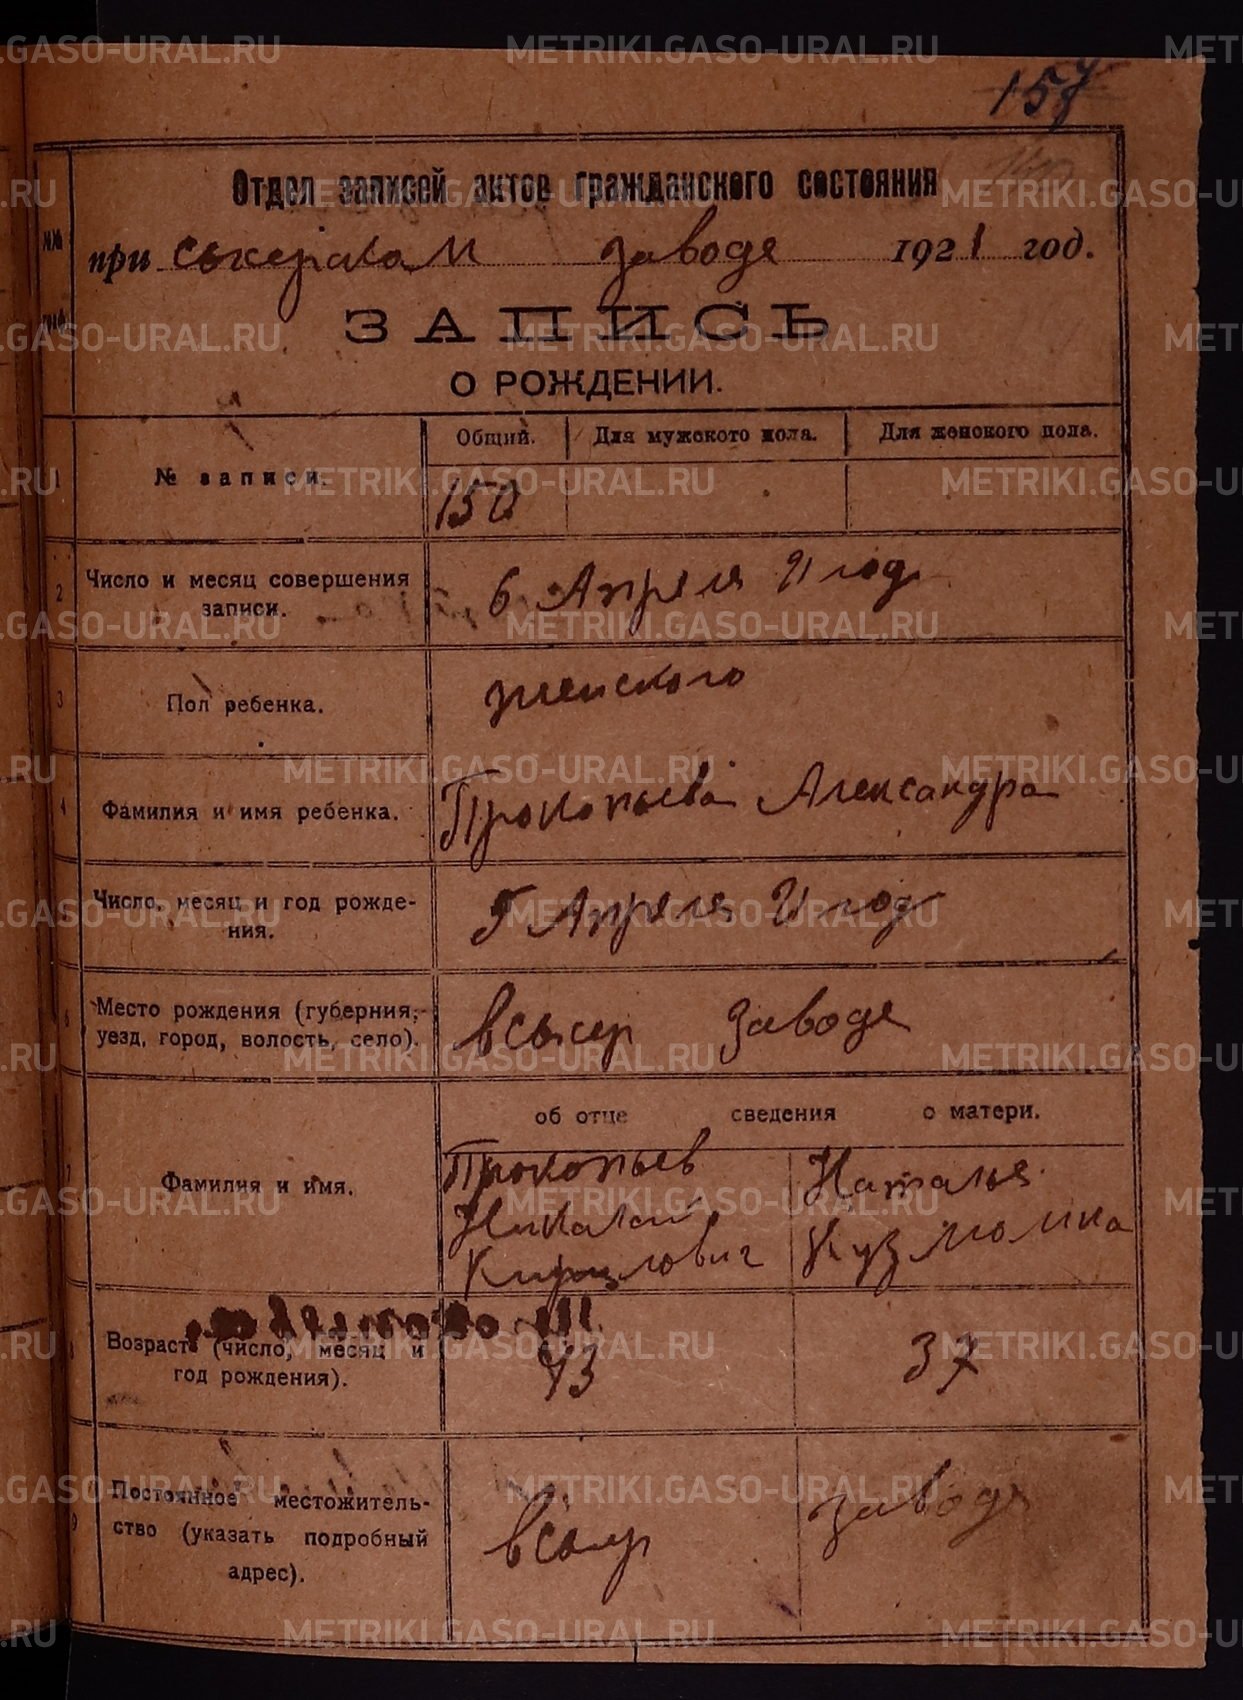 METRIKI.GASO-URAL.RU
Отдел записей актов гражданского состояния
при Сысерском заводе 1921 год.
ЗАПИСЬ
О РОЖДЕНИИ.
Общий. Для мужского пола. Для женского пола.
1 № записи. 150
2 Число и месяц совершения записи. 6 Апреля 21 год
3 Пол ребенка. женского
4 Фамилия и имя ребенка. Прокопьева Александра
Число, месяц и год рожде-
ния. 5 Апреля 21 год
6 Место рождения (губерния,
уезд, город, волость, село). всысер заводе
об отце сведения о матери.
7 Фамилия и имя. Прокопьев Наталья
Николай
Кирилович
8 Возраст (число, месяц и
год рождения). 43 37
9 Постоянное местожитель-
ство (указать подробный
адрес). заводе